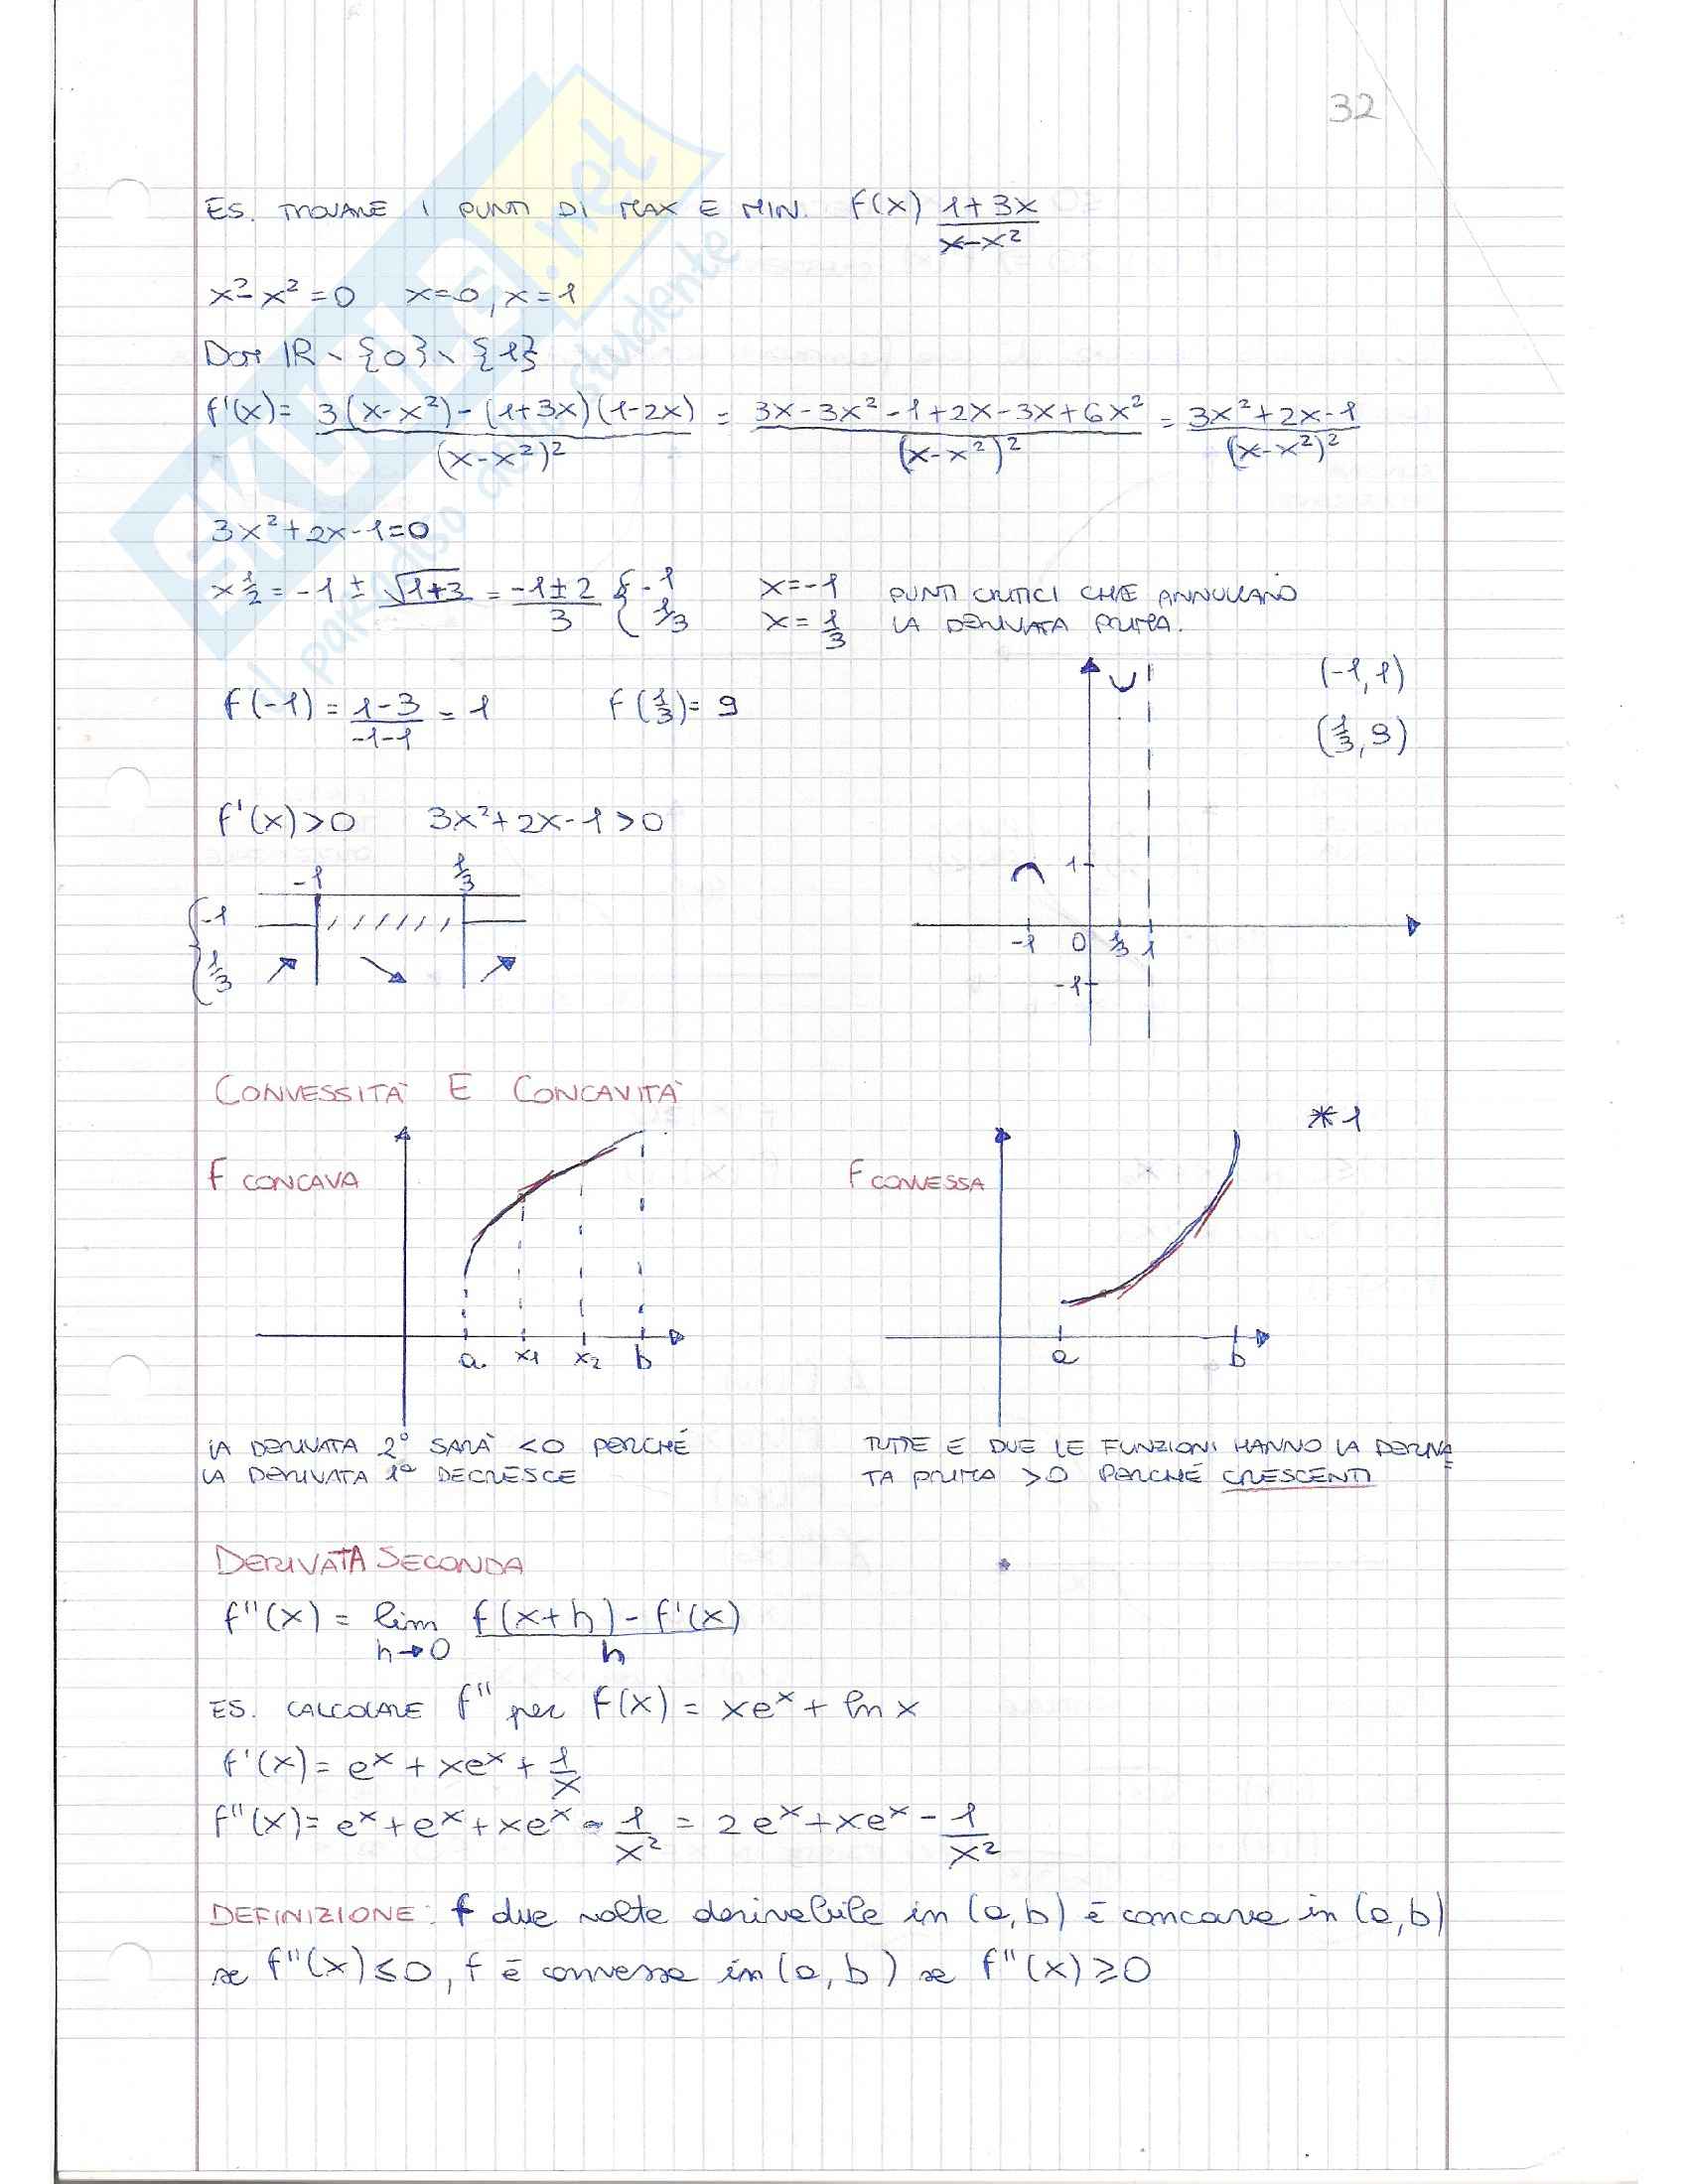 32
ES. TROVARE I PUNTI DI MAX E MIN. f(x) (1+3x)/(x-x²)
x²-x²=0 x=0, x=1
Dom IR \ {0} \ {1}
f'(x)= (3(x-x²)-(1+3x)(1-2x))/(x-x²)² = (3x-3x²-1+2x-3x+6x²)/(x-x²)² = (3x²+2x-1)/(x-x²)²
3x²+2x-1=0
x½ = -1 ± √(1+3) = (-1±2)/3 { -1 1/3 x=-1 x=1/3 PUNTI CRITICI CHE ANNULLANO
LA DERIVATA PRIMA.
f(-1) = (1-3)/(-1-1) = 1 f(1/3)= 9
(-1,1)
(1/3,9)
1
-1 0 1/3 1
-1
f'(x)>0 3x²+2x-1>0
-1 1/3
{ -1
1/3
CONVESSITÀ E CONCAVITÀ
*1
f CONCAVA
a. x1 x2 b
f CONVESSA
a b
LA DERIVATA 2° SARÀ <0 PERCHÉ
LA DERIVATA 1ª DECRESCE
TUTTE E DUE LE FUNZIONI HANNO LA DERIVA=
TA PRIMA >0 PERCHÉ CRESCENTI
DERIVATA SECONDA
*
f''(x) = lim h→0 (f(x+h)-f'(x))/h
ES. CALCOLARE f'' per f(x) = xeˣ + ln x
f'(x)= eˣ + xeˣ + 1/x
f''(x)= eˣ+eˣ+xeˣ - 1/x² = 2eˣ+xeˣ - 1/x²
DEFINIZIONE: f due volte derivabile in (a,b) è concava in (a,b)
se f''(x)≤0, f è convessa in (a,b) se f''(x)≥0
SKUOLA.net
il paradiso dello studente